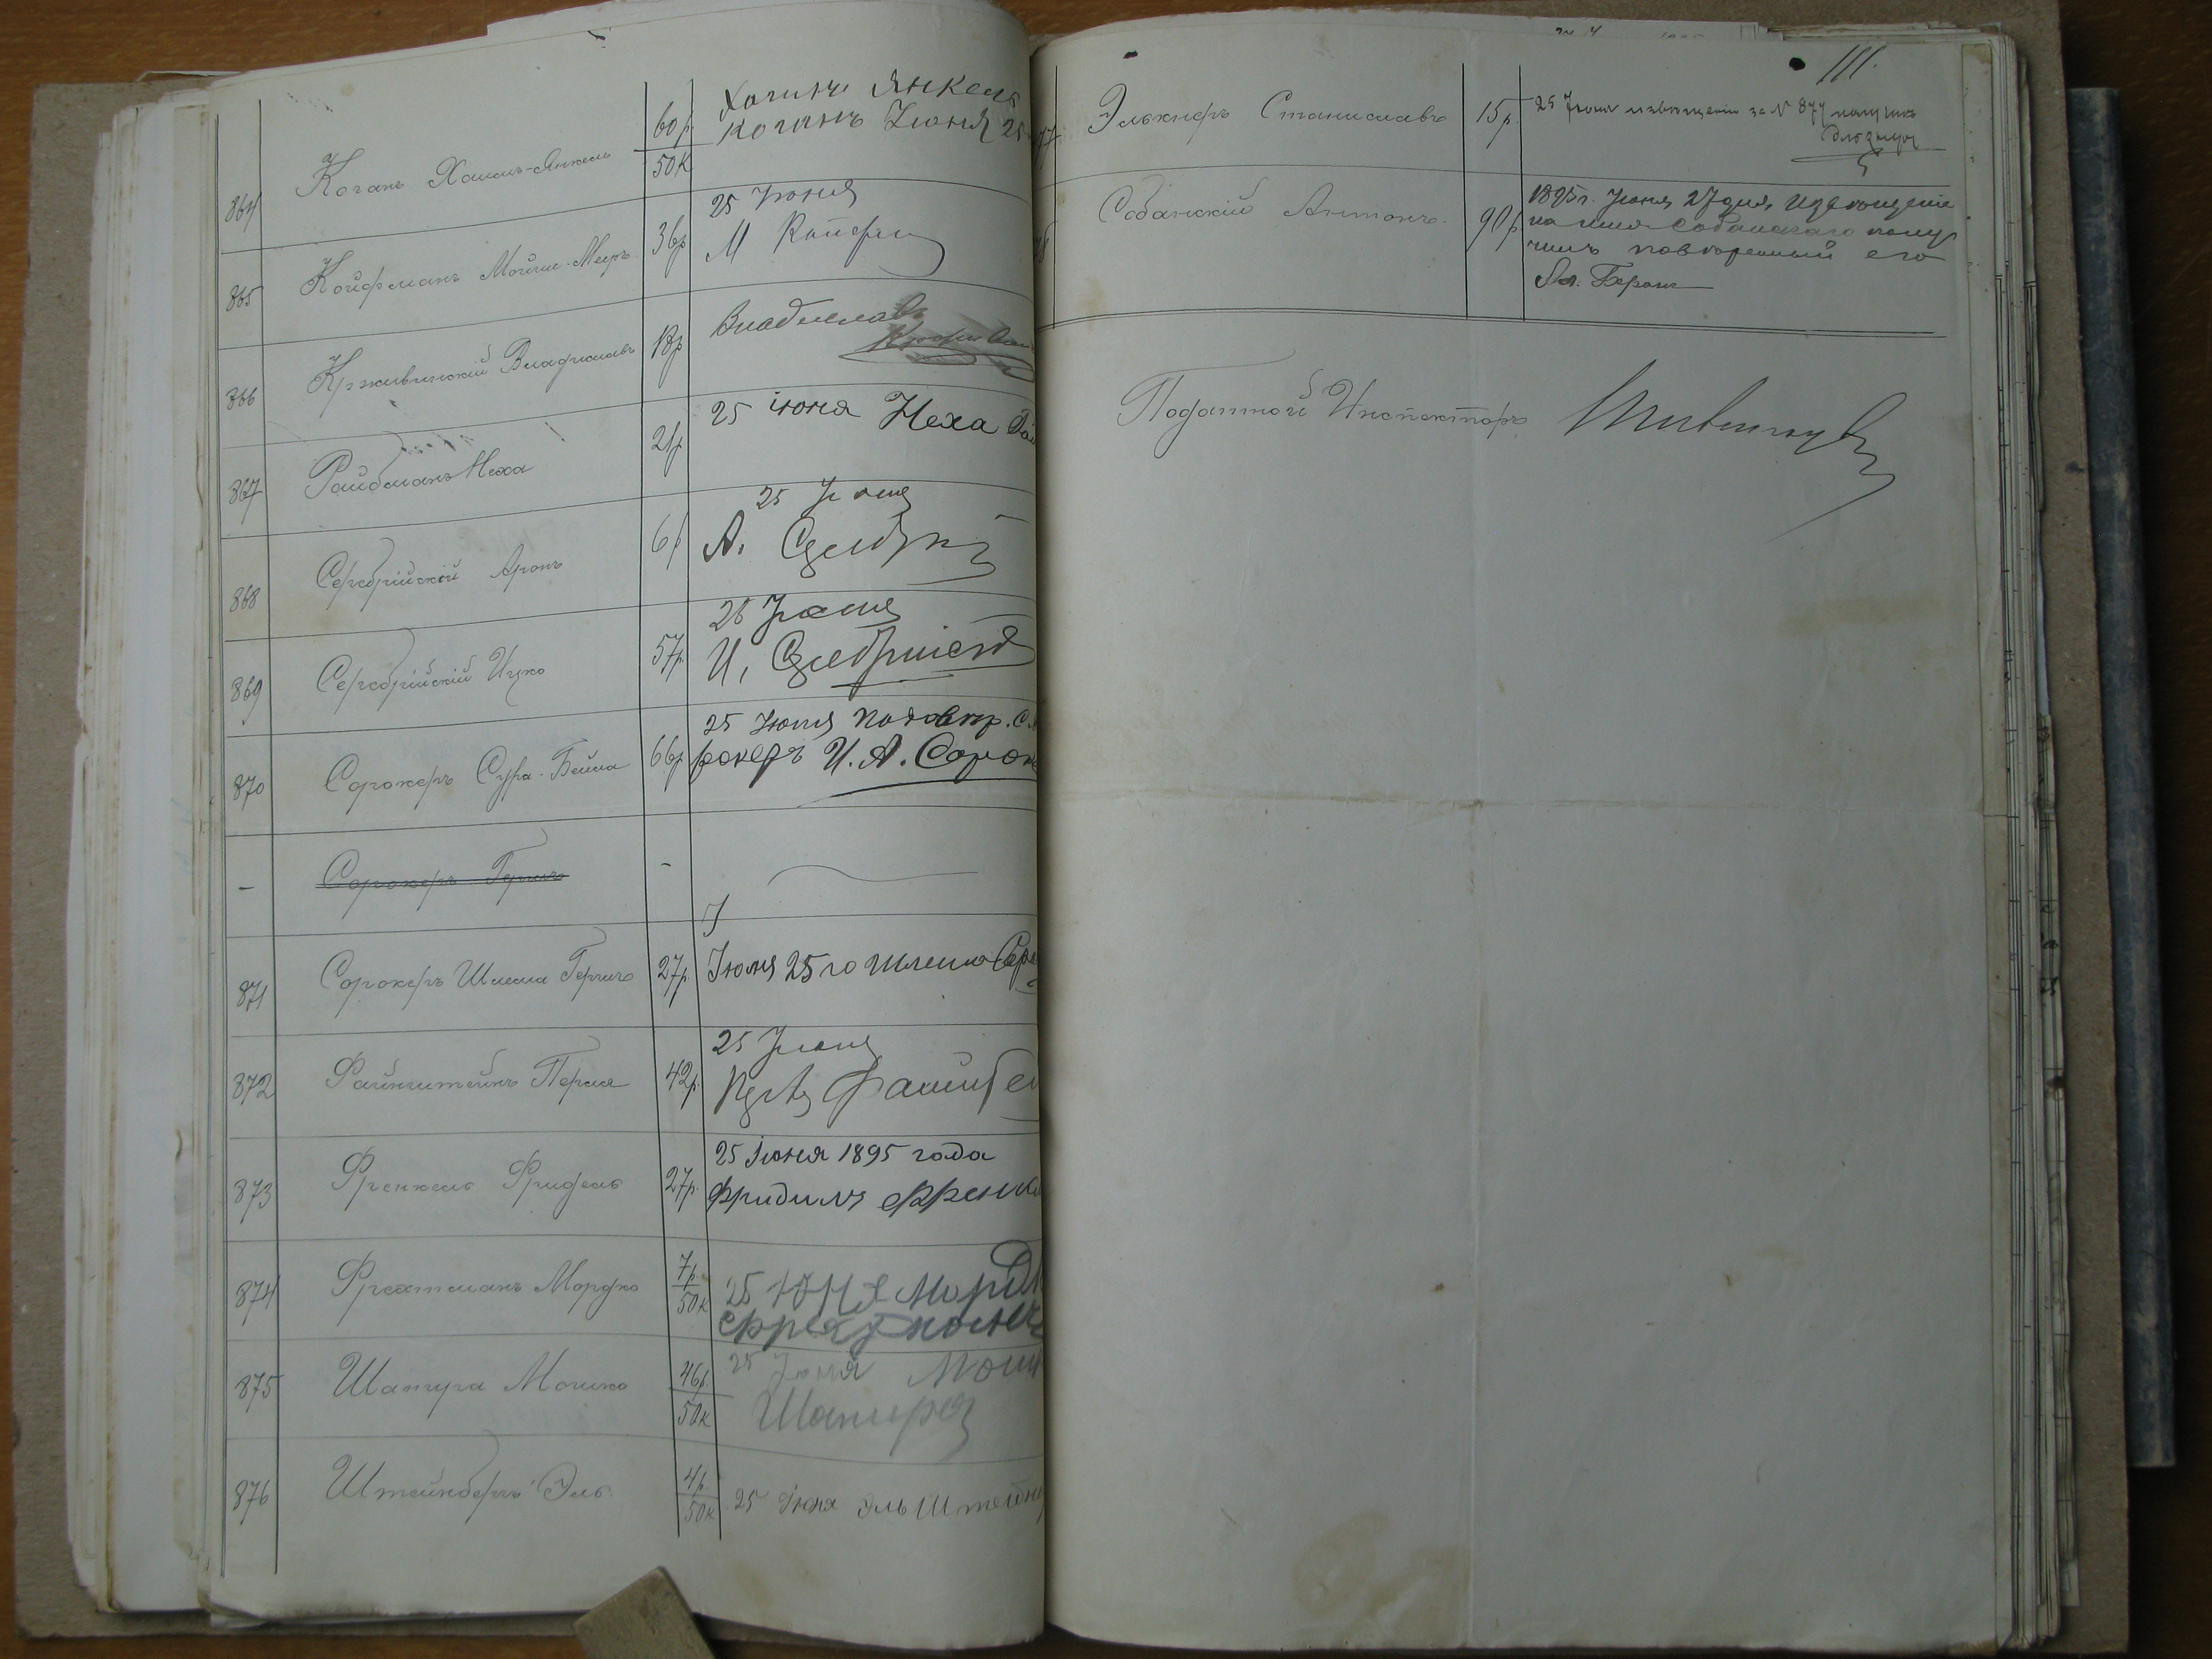 864 Коганъ Хаимъ-Янкель 60 р 50 к Янкель
Коганъ Июня 25
865 Койфманъ Мойше-Мееръ 36 р 25 Июня
М Койфман
866 Крживинскій Владиславъ 18 р Владиславъ
867 Райбманъ Неха 21 р 25 июня Неха
868 Серебрійскій Аронъ 6 р 25 Июня
А.
869 Серебрійскій Ицко 57 р. 25 Июня
И,
870 Сорокеръ Сура-Бейла 66 р 25 Июня
рокеръ И. А. Сорок
— Сорокеръ Гершъ —
871 Сорокеръ Шлема Гершъ 27 р. Июня 25 го Шлема
872 Файнштейнъ Перля 42 р. 25 Июня
873 Френкель Фридель 27 р. 25 Июня 1895 года
Фридиль Френк
874 Фрехтманъ Мордко 7 р. 50 к 25 Юня Морд
875 Шапира Мошко 46 р. 50 к 25 Июня Мош
Шапира
876 Штейнбергъ Эль. 4 р. 50 к 25 Июня Эль Штейн
111.
7 Элькнеръ Станиславъ 15 р. 25 Июня извещеніе за № 877 получилъ
8 Собанскій Антонъ. 90 р. 1895 г. Июня 27 дня, Извещеніе
на имя Собанскаго полу
чилъ повѣренный его
Податной Инспекторъ